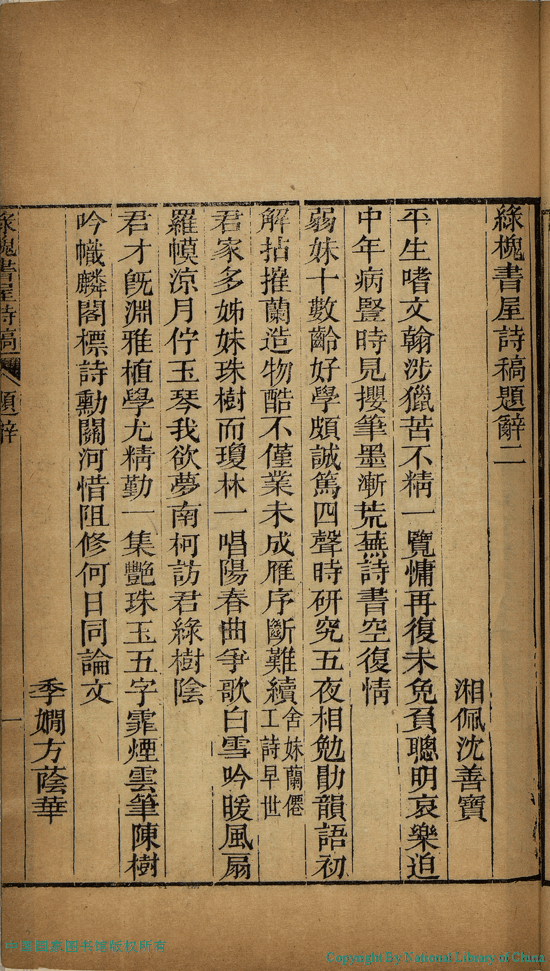 綠槐書屋詩稿題辭二
湘佩沈善寶
平生嗜文翰涉獵苦不精一覽慵再復未免負聰明哀樂迫
中年病豎時見攖筆墨漸荒蕪詩書空復情
弱妹十數齡好學頗誠篤四聲時研究五夜相勉勖韻語初
解拈摧蘭造物酷不僅業未成雁序斷難續舍妹蘭僊工詩早世
君家多姊妹珠樹而瓊林一唱陽春曲爭歌白雪吟暖風扇
羅幙涼月佇玉琴我欲夢南柯訪君綠樹陰
君才旣淵雅植學尤精勤一集艷珠玉五字霏煙雲筆陳樹
吟幟麟閣標詩勳關河惜阻修何日同論文
季嫺方蔭華
綠槐書屋詩稿 題辭 一
中国国家图书馆版权所有
Copyright By National Library of China